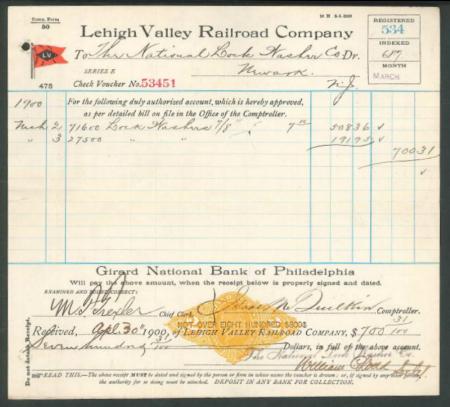 Form. Form
50
Lehigh Valley Railroad Company
REGISTERED
534
INDEXED
657
MONTH
MARCH
LV
To The National Lock Washer Co. Dr.
SERIES E
Newark
475
Check Voucher No. 53451
N.J.
1900
For the following duly authorized account, which is hereby approved,
as per detailed bill on file in the Office of the Comptroller.
Mch 2 71600 Lock Washers 7/8" 7 508 36 ✓
" 3 27500 " " 191 95 ✓
700 31
✓
Girard National Bank of Philadelphia
Will pay the above amount, when the receipt below is properly signed and dated.
EXAMINED AND FOUND CORRECT:
Chief Clerk.
Comptroller.
NOT OVER EIGHT HUNDRED $800$
Received, Apl 30 1900, of LEHIGH VALLEY RAILROAD COMPANY, $700 31/100
Seven hundred 31/100 Dollars, in full of the above account.
Do not detach Receipt.
The National Lock Washer Co.
William Dodd
READ THIS.—The above receipt MUST be dated and signed by the person or firm in whose name the voucher is drawn; or, if signed by any other party
the authority for so doing must be attached. DEPOSIT IN ANY BANK FOR COLLECTION.